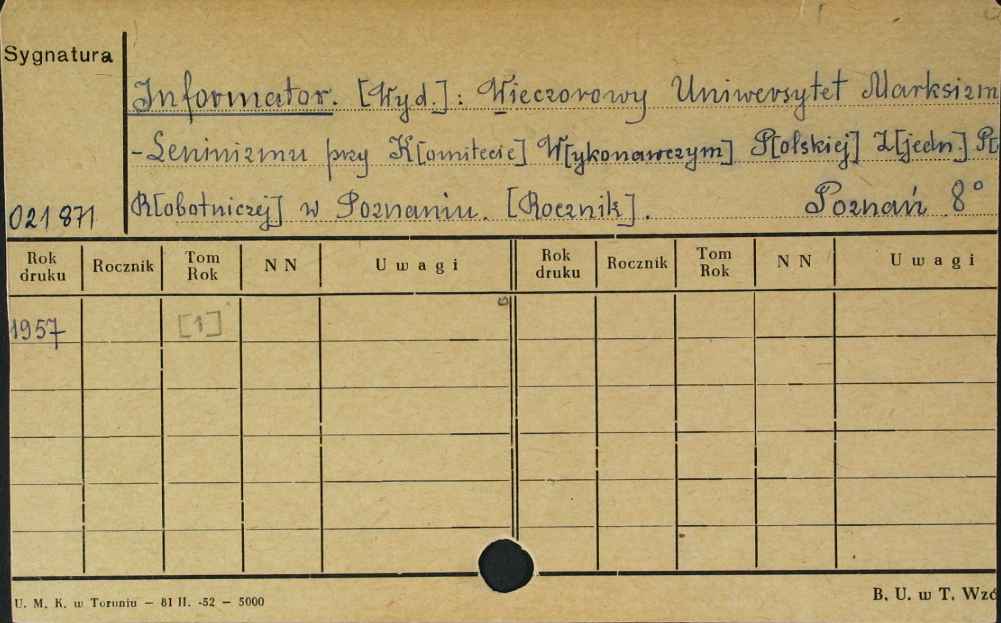 Sygnatura
Informator. [Wyd.]: Wieczorowy Uniwersytet Marksizm
-Leninizmu przy K[omitecie] W[ykonawczym] P[olskiej] Z[jedn.] P[
R[obotniczej] w Poznaniu. [Rocznik]. Poznań 8°
021871
Rok druku Rocznik Tom Rok NN Uwagi Rok druku Rocznik Tom Rok NN Uwagi
1957 [1]
U. M. K. w Toruniu – 81 II. -52 – 5000
B. U. w T. Wzó